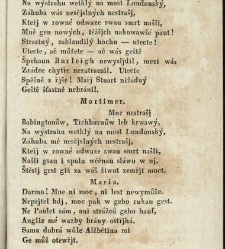 Na weystrahu wetkly na most Londonský,
Záhuba wás nesčjslných nestrašj,
Kteřj w rowné odwaze swau smrt našli,
Mně gen nowých, těžšjch nakowuwše paut!
Strastný, zablaudilý hochu — utecte!
Utecte, oč můžete — oč wás geště
Špehaun Burleigh newyslídil, mezi wás
Zrádce chytře nezatrausil. Utecte
Spěšně z řjše! Marj Stuart nižádný
Geště šťastně nebránil.
Mortimer.
Mne nestrašj
Babingtonůw, Tichburnůw leb krwawý,
Na weystrahu wetklý na most Londonský,
Záhuba mě nesčjslných nestrašj,
Kteřj w rowné odwaze swau smrt našli,
Našli gsau i spolu wěčnau sláwu w nj,
Štěstj gest giž za wás žiwot zemřjt moct.
Maria.
Darmo! Mne ni moc, ni lest newymůže.
Nepřjtel bdj, moc pak w geho rukau gest.
Ne Paulet sám, ani strážců geho hauf,
Anglie mé wazby brány ostřjhá.
Sama dobrá wůle Alžbětina mi
Ge může otewřjt.